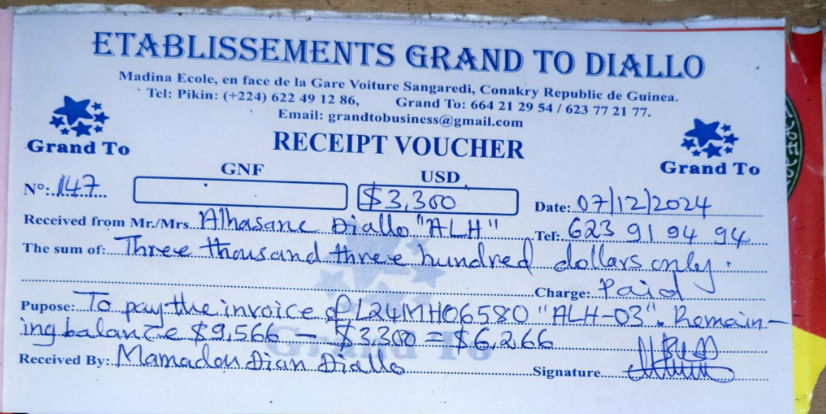 ETABLISSEMENTS GRAND TO DIALLO
Madina Ecole, en face de la Gare Voiture Sangaredi, Conakry Republic de Guinea.
Tel: Pikin: (+224) 622 49 12 86, Grand To: 664 21 29 54 / 623 77 21 77.
Email: grandtobusiness@gmail.com
Grand To RECEIPT VOUCHER Grand To
GNF USD
N°: 147 $3,300 Date: 07/12/2024
Received from Mr./Mrs. Alhasane Diallo "ALH" Tel: 623 91 94 94
The sum of: Three thousand three hundred dollars only.
Charge: Paid
Pupose: To pay the invoice of L24MH06580 "ALH-03". Remain-
ing balance $9,566 - $3,300 = $6,266
Received By: Mamadou Dian Diallo Signature